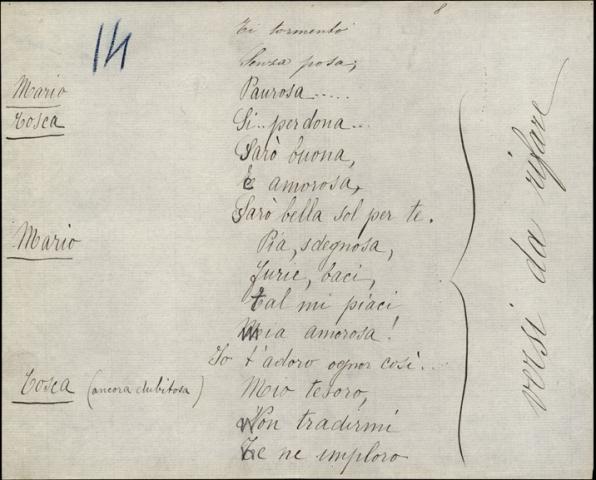 8
14
Ti tormento
Senza posa;
Mario Paurosa.....
Tosca Si.. perdona...
Sarò buona,
E amorosa,
Sarò bella sol per te.
Mario Pia, sdegnosa,
Furie, baci,
Tal mi piaci
Mia amorosa!
Io t'adoro ognor così...
Tosca (ancora dubitosa) Mio tesoro,
Non tradirmi
Te ne imploro
versi da rifare